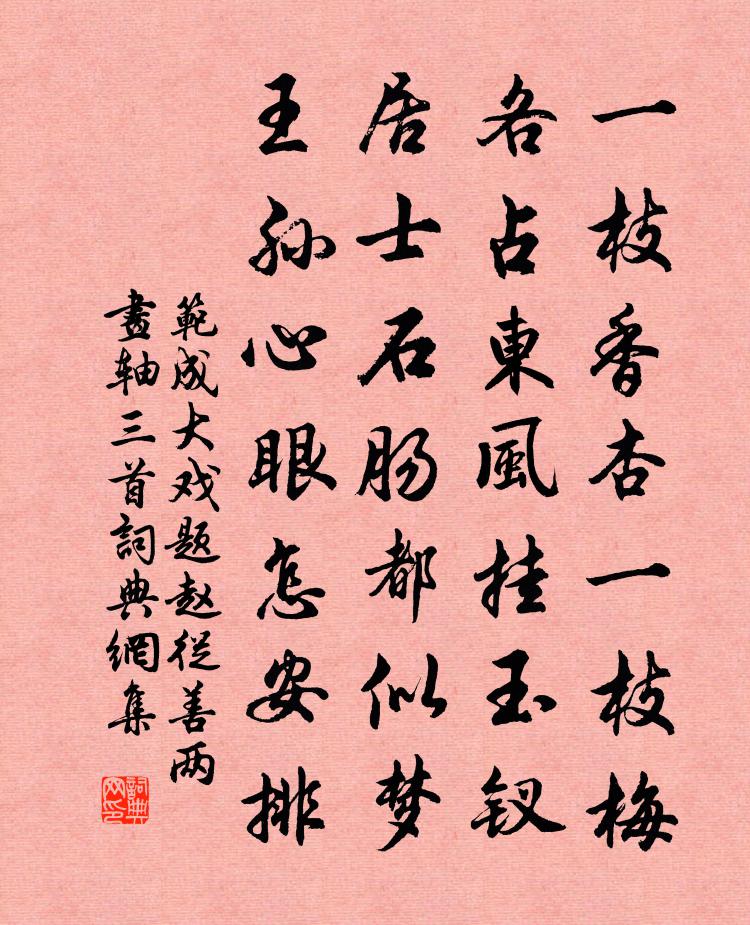 一枝香杏一枝梅
各占東風挂玉釵
居士石肠都似梦
王孙心眼怎安排
範成大戏题赵從善两
畫轴三首詞典網集
詞典网印